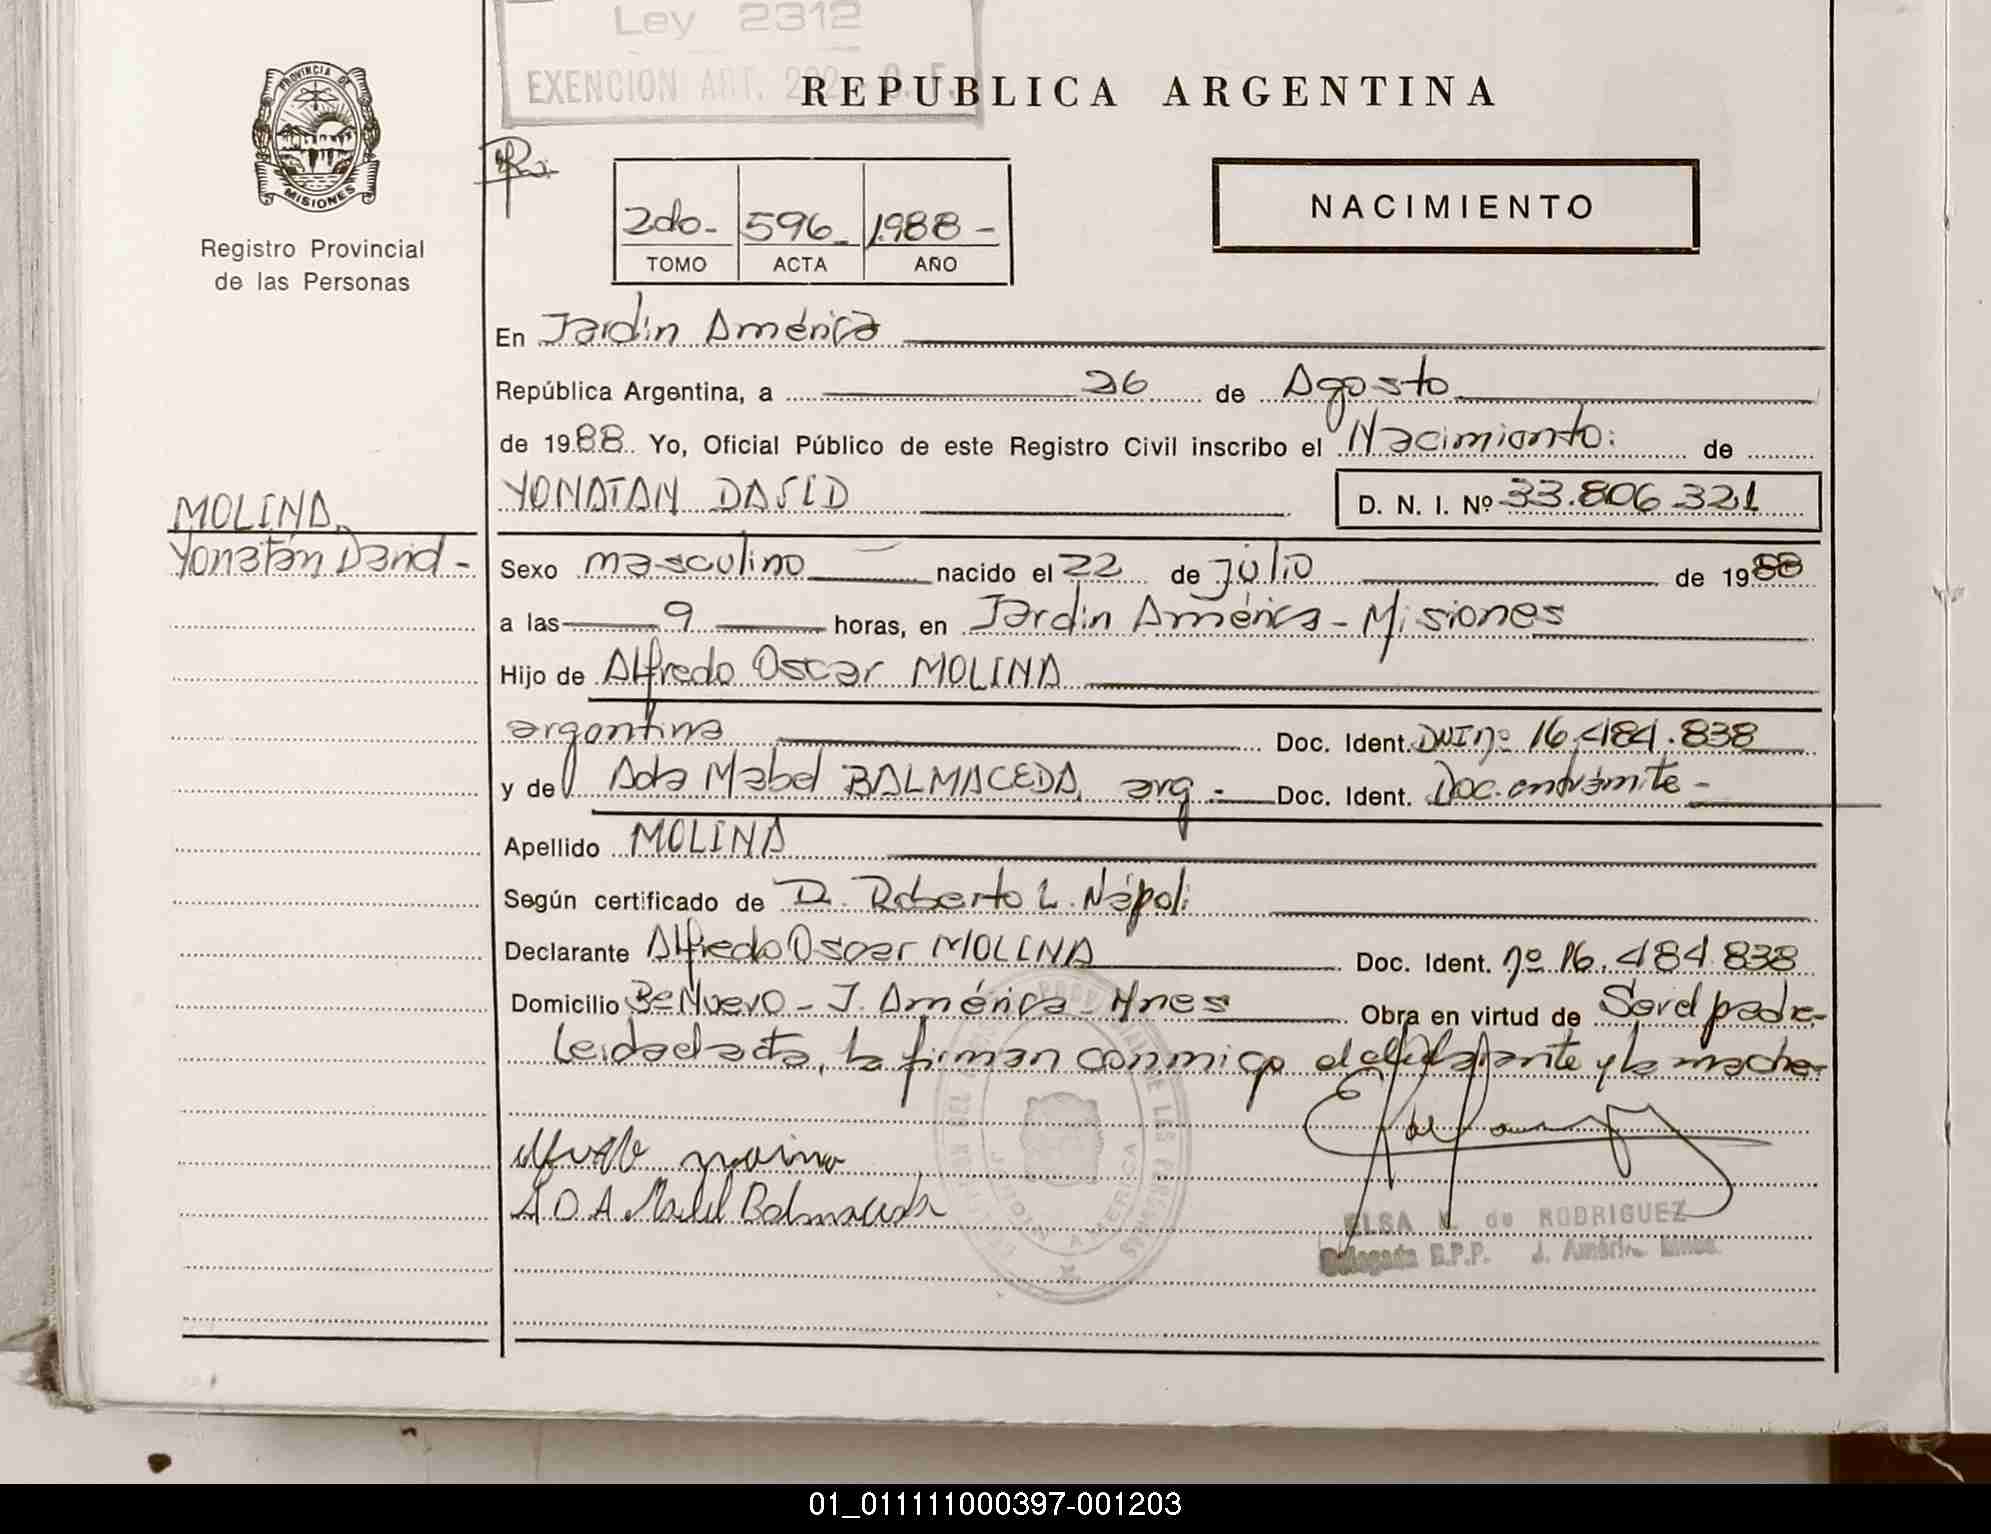 Ley 2312
EXENCION ART. 202 C. F.
REPUBLICA ARGENTINA
PROVINCIA DE
MISIONES
Registro Provincial
de las Personas
2do- 596- 1.988-
TOMO ACTA AÑO
NACIMIENTO
En Jardin América
República Argentina, a 26 de Agosto
de 1988. Yo, Oficial Público de este Registro Civil inscribo el Nacimiento: de
YONATAN DAVID D. N. I. Nº 33.806.321
MOLINA,
Yonatan David -
Sexo masculino nacido el 22 de julio de 1988
a las 9 horas, en Jardin América - Misiones
Hijo de Alfredo Oscar MOLINA
argentina Doc. Ident. DNI nº 16.484.838
y de Ada Mabel BALMACEDA, arg - Doc. Ident. Doc. en trámite -
Apellido MOLINA
Según certificado de D. Roberto L. Nápoli
Declarante Alfredo Oscar MOLINA Doc. Ident. nº 16.484.838
Domicilio Bº Nuevo - J. América - Mnes Obra en virtud de Ser el padre-
Leida el acta, la firman conmigo el declarante y la madre-
ADA Mabel Balmaceda
ELSA N. de RODRIGUEZ
Delegada R.P.P. J. América Mnes.
01_011111000397-001203